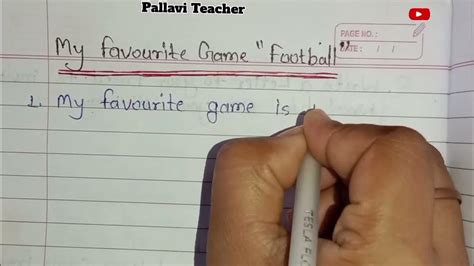 Pallavi Teacher
PAGE NO.:
DATE: / /
My favourite Game "Football"
1. My favourite game is
TESLA